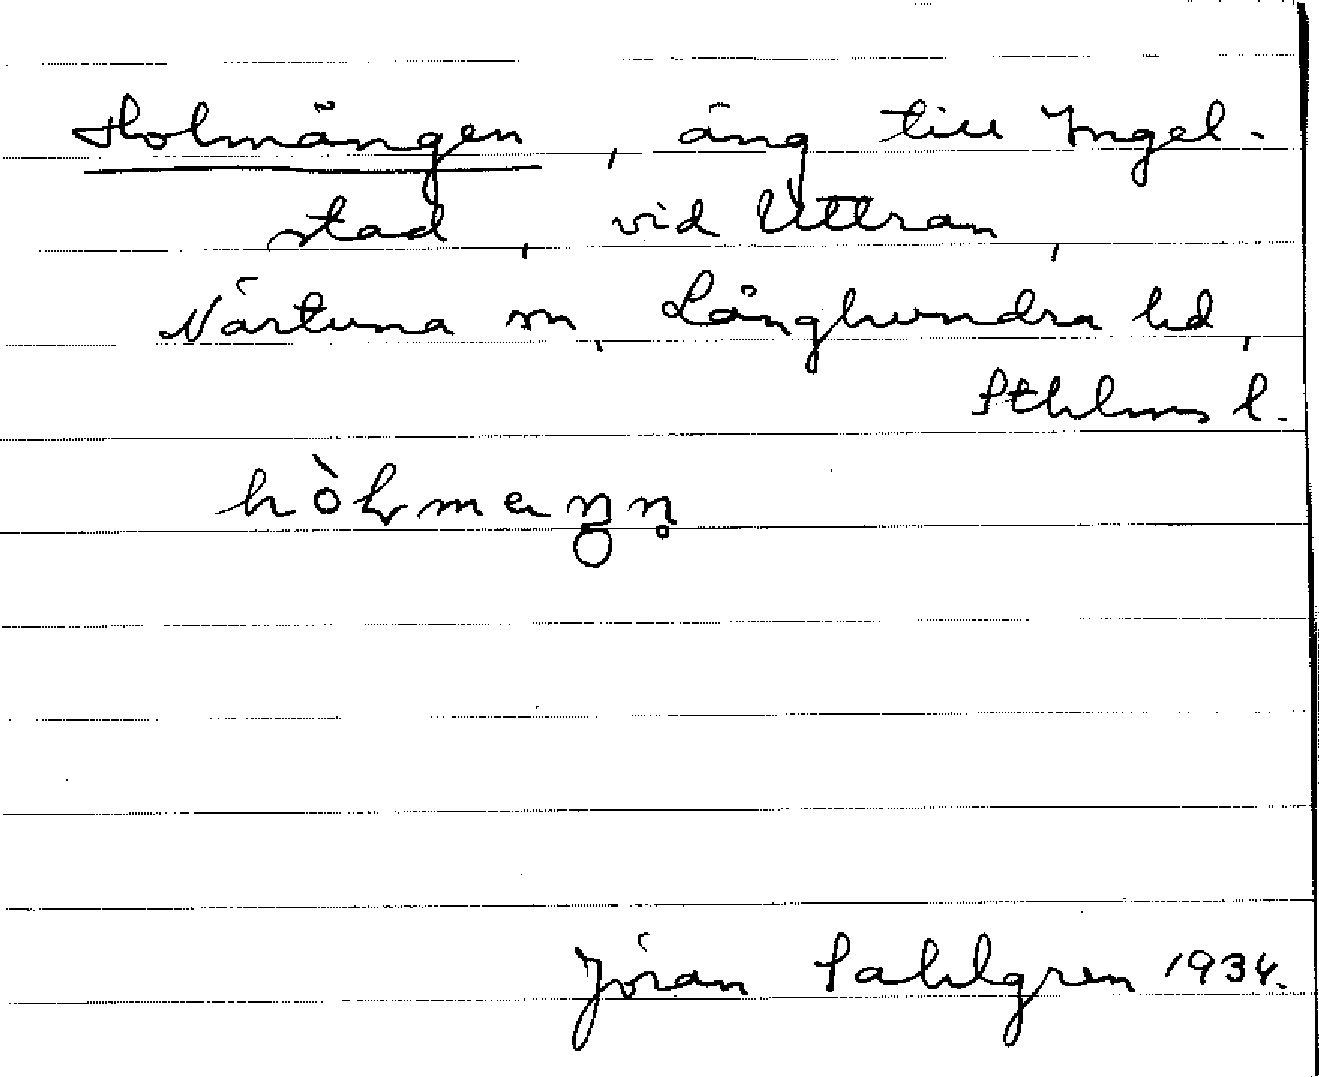 Holmängen, äng till Ingel-
stad, vid Uttran,
Närtuna sn, Långhundra hd,
Sthlms l.
Jöran Sahlgren 1934.